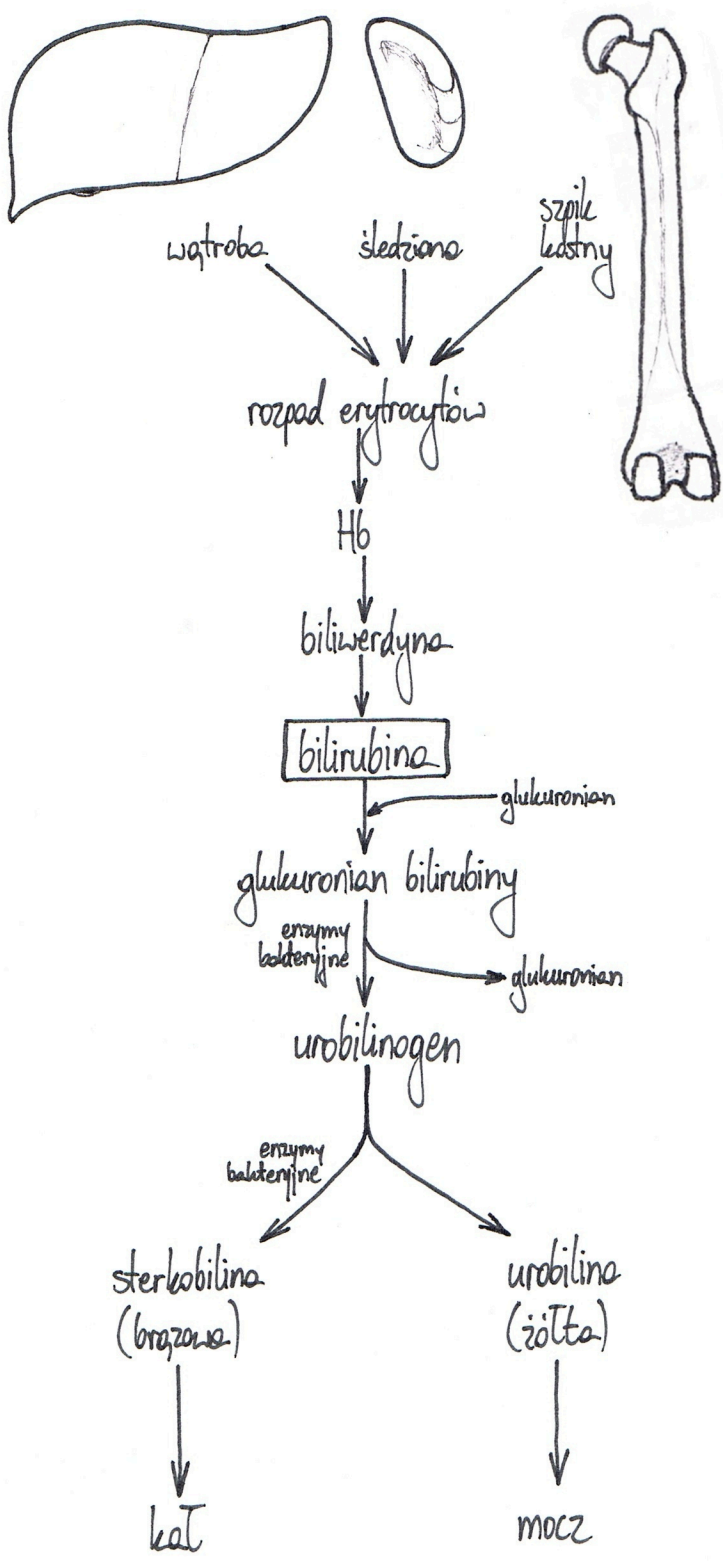 wątroba
śledziona
szpik
kostny
rozpad erytrocytów
Hb
biliwerdyna
bilirubina
glukuronian
glukuronian bilirubiny
enzymy
bakteryjne
glukuronian
urobilinogen
enzymy
bakteryjne
sterkobilina
(brązowa)
urobilina
(żółta)
kał
mocz